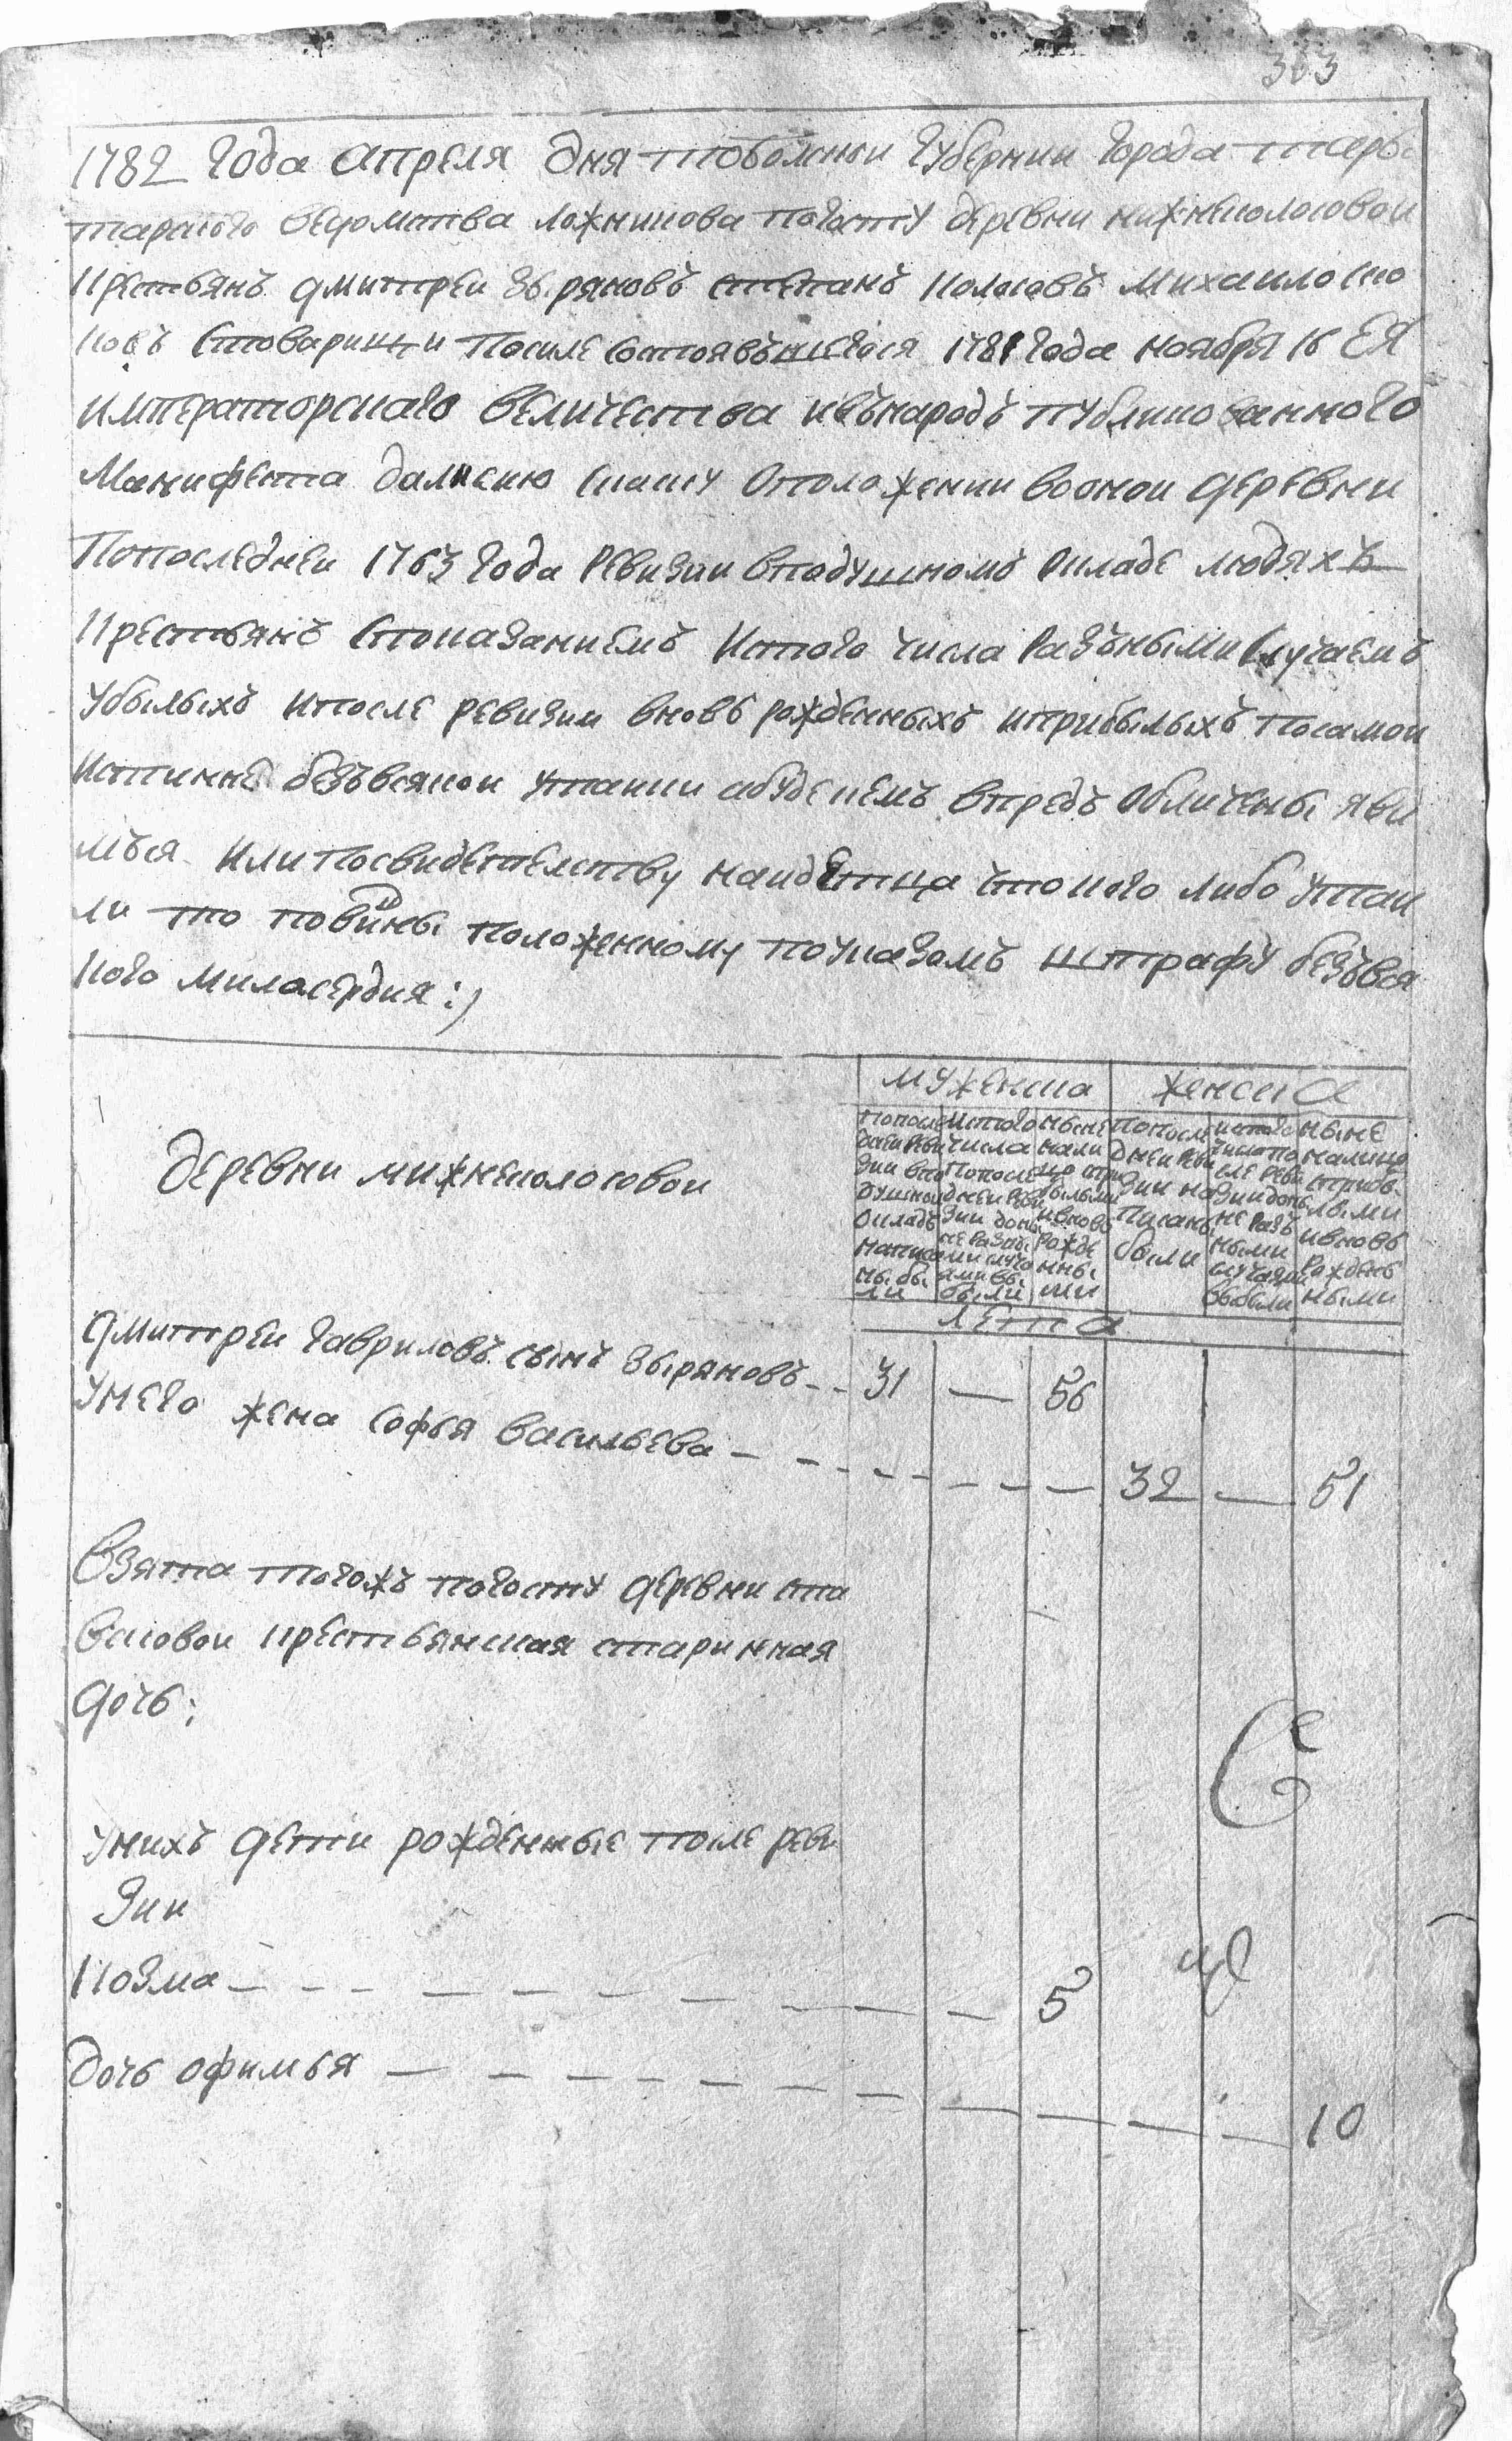 303
1782 года апреля дня тобольскои губернии города тары
тарского ведомства ложникова погосту деревни нижнеколосовои
крестьянъ дмитреи зыряновъ степанъ колосовъ михаило
ковъ стоварищи после состоявъшегося 1781 года ноября 16 ЕЯ
императорскаго величества ивънародъ публикованного
манифеста дали сию скаску оположении воонои деревни
попоследнеи 1763 года ревизии вподушномъ окладе людяхъ
крестьянъ сп
оказаниемъ истого числа разъными случаемъ
убылыхъ ипосле ревизии вновь рожденныхъ иприбылыхъ посамои
истинне безъвсякои утаики абуде кемъ впредь обличены яви
мъся илипосвидетелству наидетца что кого либо утаи
ли то повинны положенному поуказамъ штрафу безъвся
кого милосердия :)
мужеска женска
деревни нижнеколосовои
попоследнеи ревизии вподушном окладъ написаны были
истого числа попоследнеи ревизии доныне разными случаями выбыли
ныне налицо сприбылыми ивновь рожденными
попоследнеи ревизии написаны были
истого числа после ревизии доныне разъными случаями выбыли
ныне налицо сприбылыми ивновь рожденными
лета
дмитреи гавриловъ сынъ зыряновъ -- 31 — 56
унего жена софья васильева — 32 — 51
взята тогожъ погосту деревни
крестьянская старинная
дочь;
унихъ дети рожденные после реви
зии
козма — 5
дочь офимья — 10